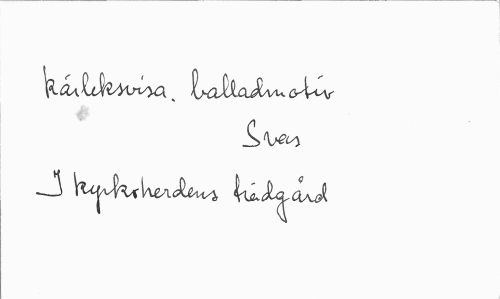 kärleksvisa. balladmotiv
Sven
I kyrkoherdens trädgård